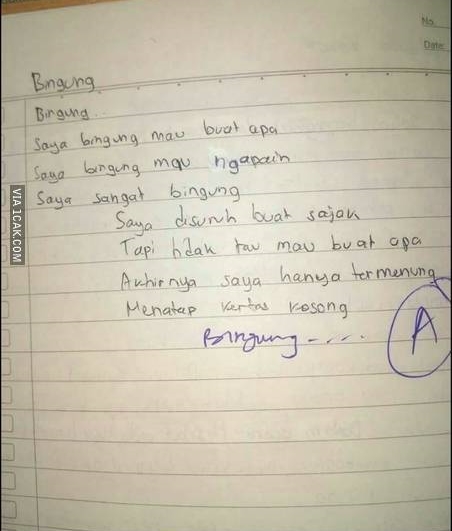 No.
Date:
Bingung
Bingung...
Saya bingung mau buat apa
Saya bingung mau ngapain
Saya sangat bingung
Saya disuruh buat sajak
Tapi tidak tau mau buat apa
Akhirnya saya hanya termenung
Menatap kertas kosong
Bingung.....
A
VIA 1CAK.COM